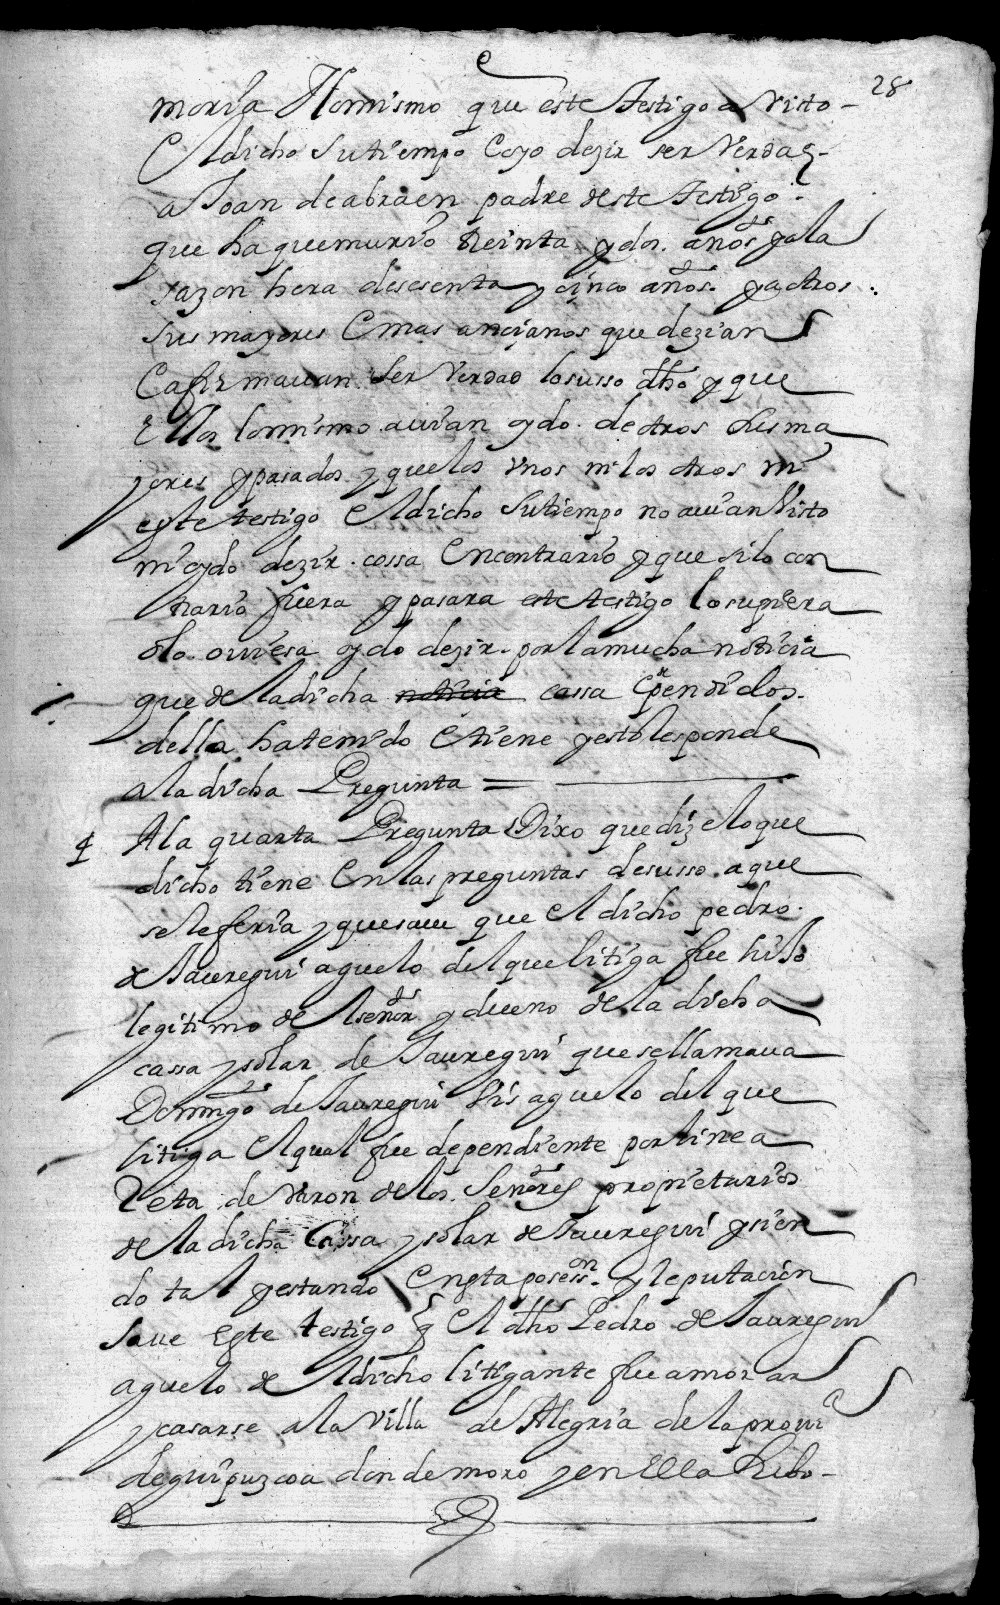 28
moria Y lo mismo que este testigo a visto
el dicho su tiempo e oyo dezir ser verdad
a Joan de abraen padre deste testigo
que ha que murio treinta y dos años y a la
sazon hera de sesenta y cinco años y a otros
sus mayores e mas ancianos que dezian
e afirmauan ser verdad lo susso dho y que
ellos lo mismo auian oydo de otros sus ma
yores y pasados y que los vnos ni los otros ni
este testigo el dicho su tiempo no auian visto
ni oydo dezir cossa en contrario y que si lo con
trario fuera y pasara este testigo lo supiera
o lo ouiera oydo dezir por la mucha noticia
que de la dicha noticia cassa e pendidos
della ha tenido e tiene y esto responde
a la dicha Pregunta =
4 A la quarta Pregunta Dixo que dize lo que
dicho tiene en las preguntas desusso a que
se referia y que saue que el dicho pedro
de Jauregui aguelo del que litiga fue hijo
legitimo de el señor y dueno de la dicha
cassa y solar de Jauregui que se llamaua
Domingo de Jauregui bis aguelo del que
litiga el qual fue dependiente por linea
Reta de varon de los Señores propietarios
de la dicha Cassa y solar de Jauregui y sien
do tal y estando en esta posesson y reputacion
saue este testigo q el dho Pedro de Jauregui
aguelo de el dicho littigante fue a morar
y casarse a la villa de Alegria de la proui
de guipuzcoa donde moro y en ella hubo